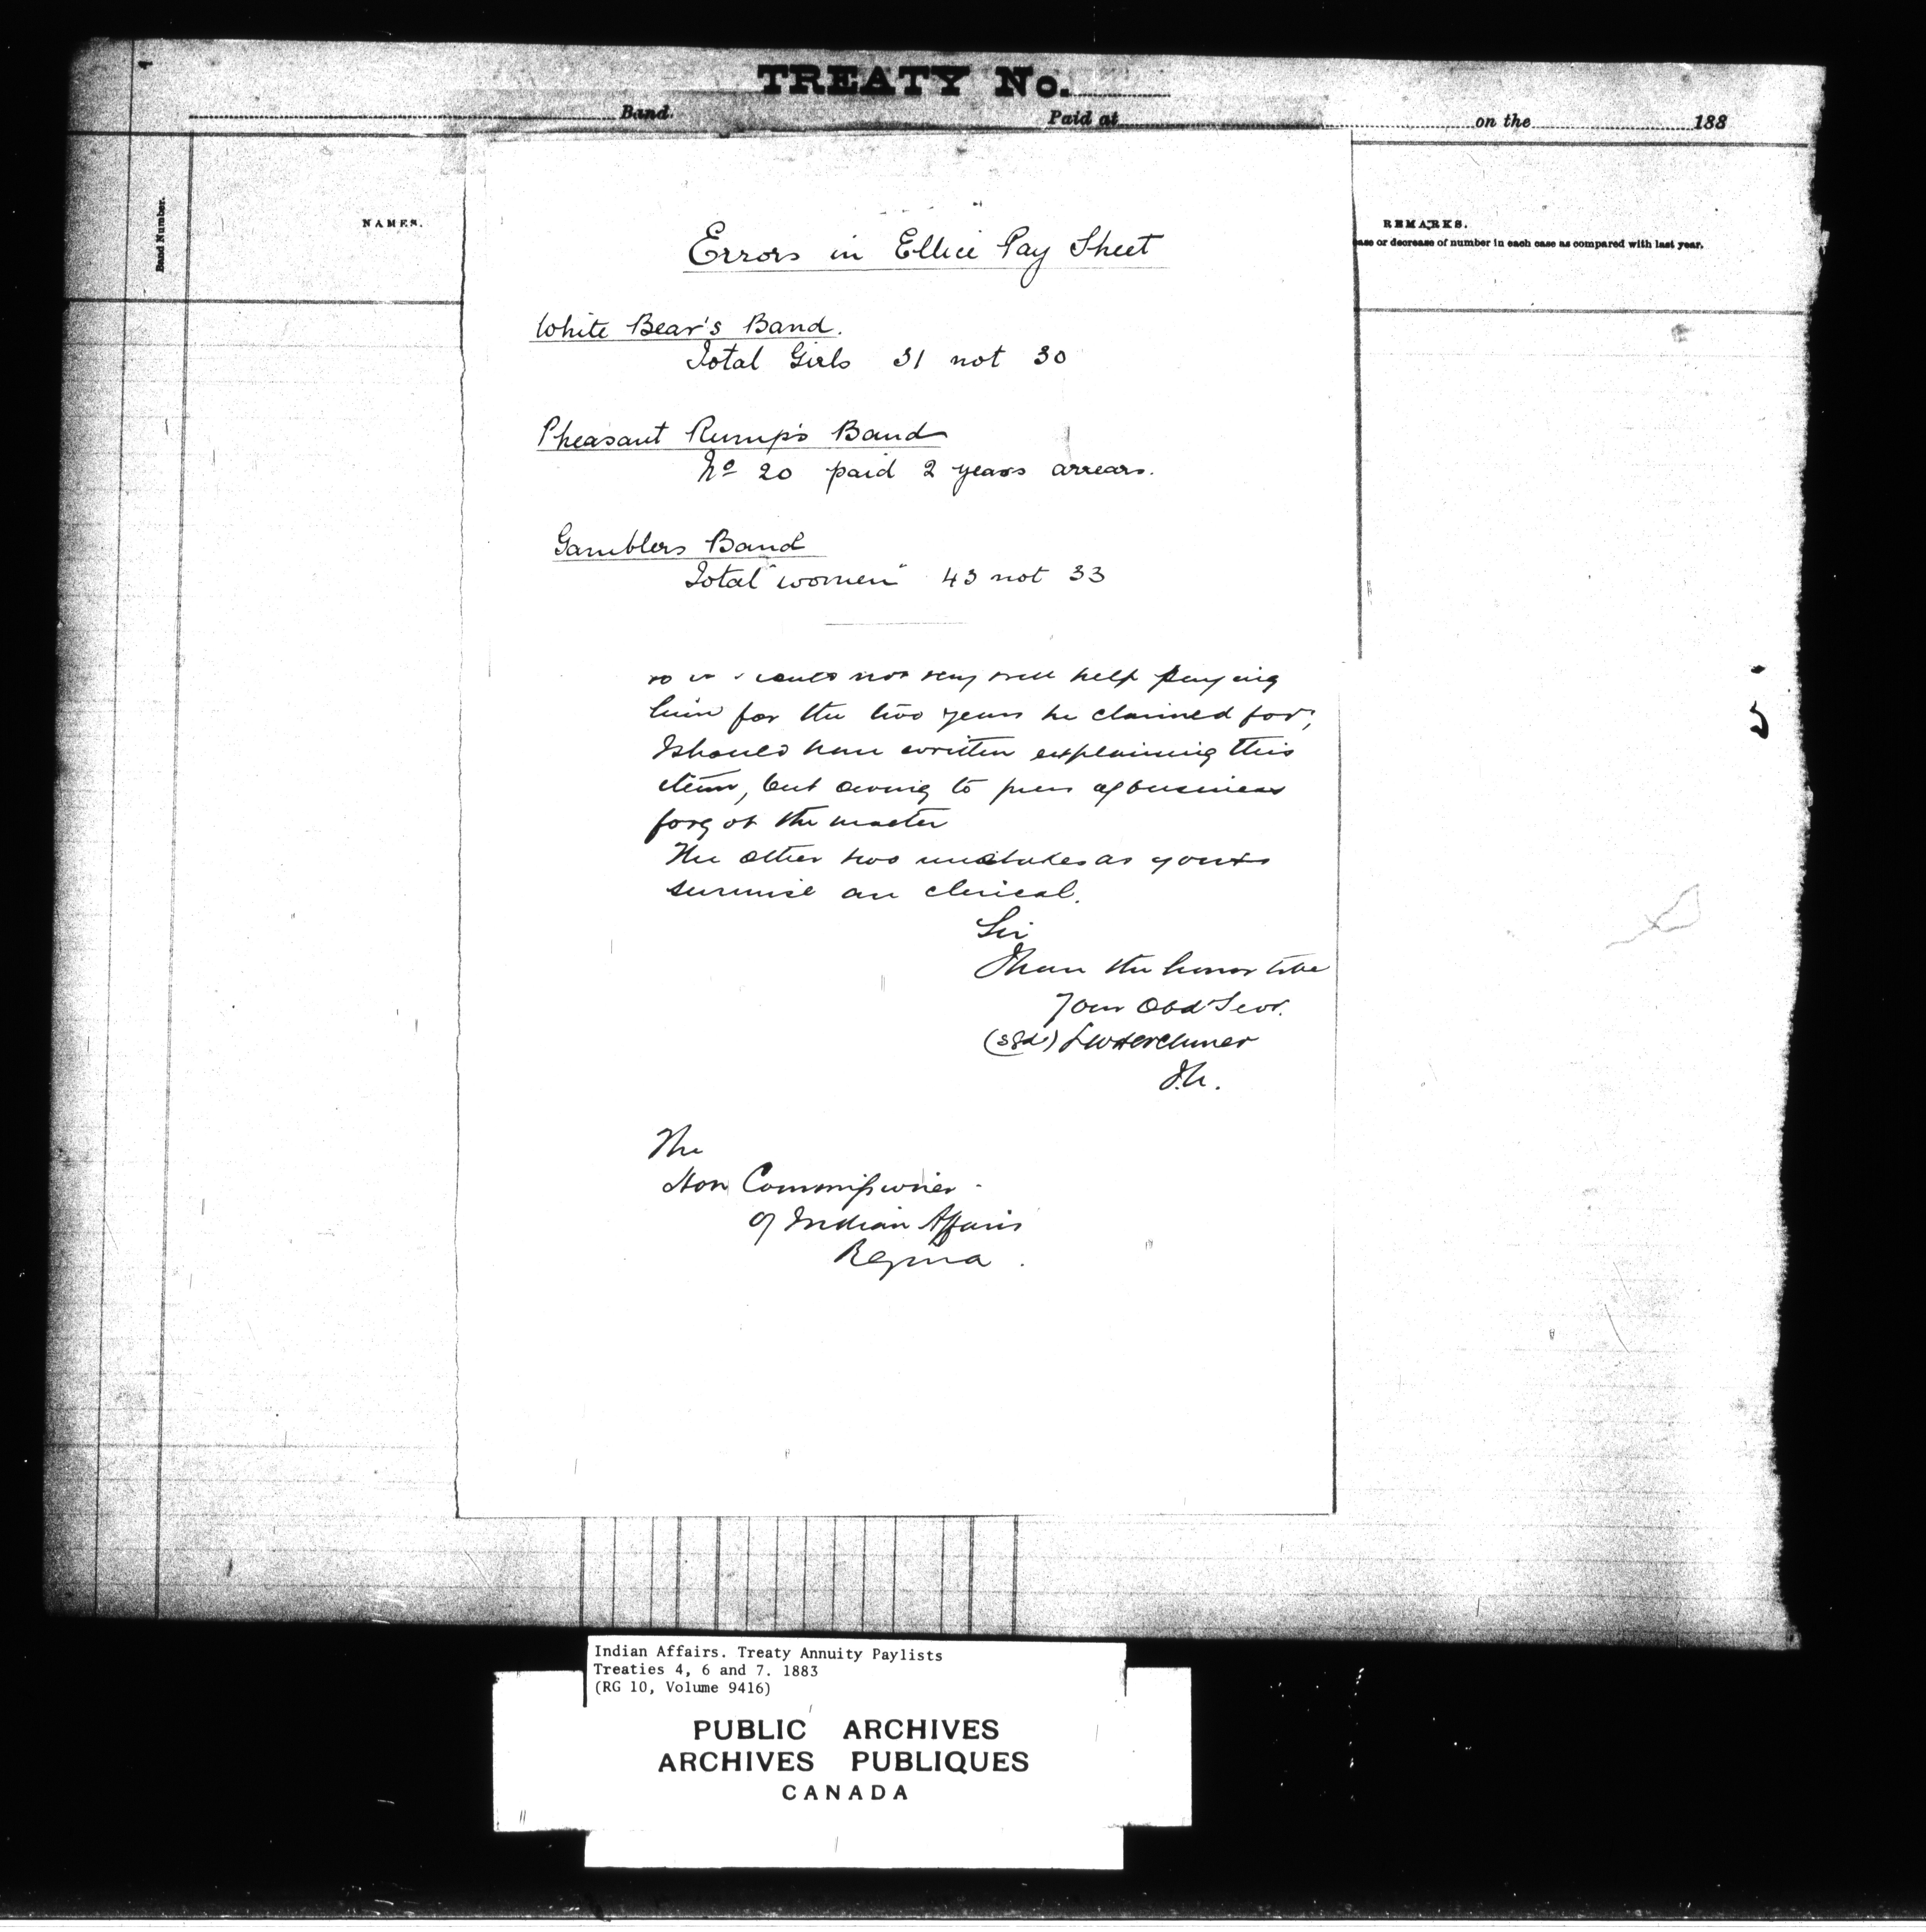 TREATY No.
Band. Paid at on the 188
Band Number.
NAMES.
REMARKS.
ase or decrease of number in each case as compared with last year.
Errors in Ellice Pay Sheet
White Bear's Band.
Total Girls 31 not 30
Pheasant Rump's Band
No 20 paid 2 years arrears.
Gamblers Band
Total "women" 43 not 33
so could not very well help paying
him for the two years he claimed for,
I should have written explaining this
item, but owing to press of business
forgot the matter
The other two mistakes as you
surmise are clerical.
Sir
I have the honor to be
Your Obd Servt.
(sgd) LW Herchmer
I.A.
The
Hon Commissioner
of Indian Affairs
Regina.
Indian Affairs. Treaty Annuity Paylists
Treaties 4, 6 and 7. 1883
(RG 10, Volume 9416)
PUBLIC ARCHIVES
ARCHIVES PUBLIQUES
CANADA